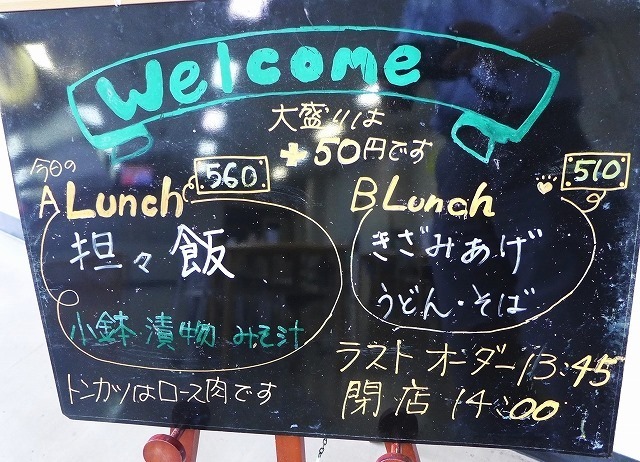 Welcome
大盛りは
+50円です
今日の
A Lunch 560
担々飯
小鉢 漬物 みそ汁
B Lunch 510
きざみあげ
うどん・そば
トンカツはロース肉です
ラストオーダー13:45
閉店 14:00